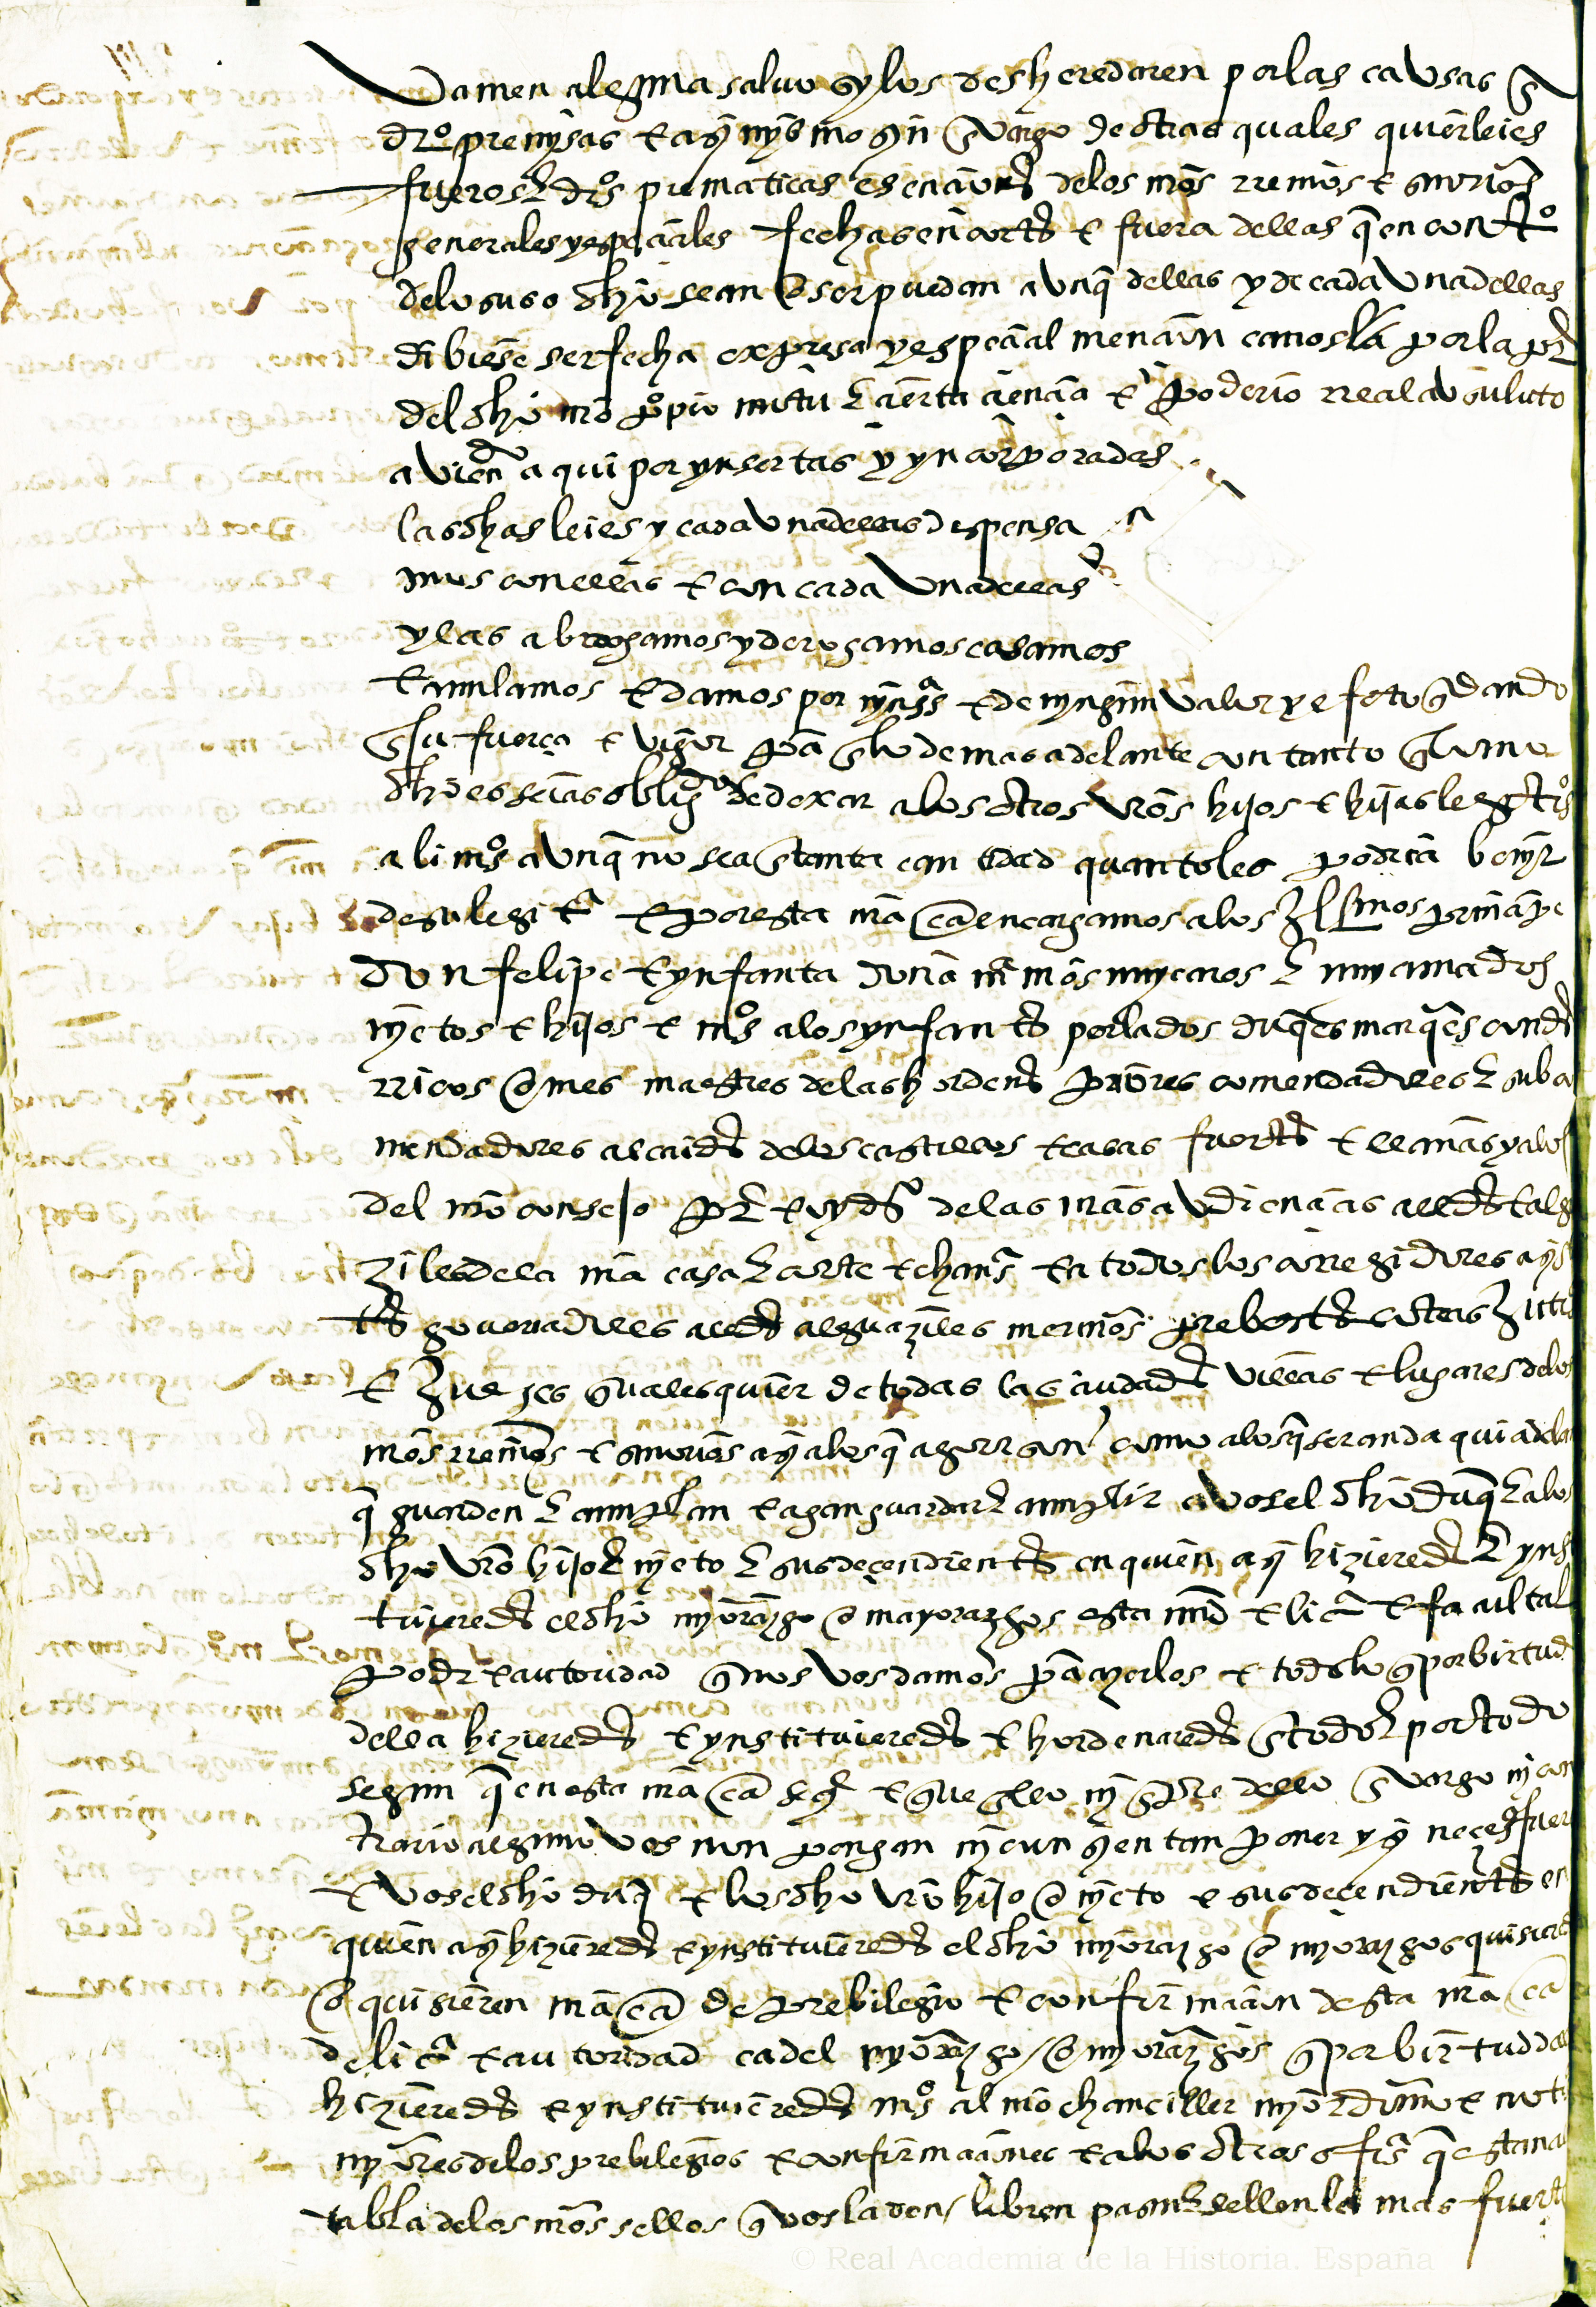 da men alguna salvo sy los desheredaren por las cavsas q̄
dr̄o premysas e asy mysmo syn enbargo de otras quales quier leies
fueros e dr̄os prematicas esenciones de los nr̄os rreinos e señorios
generales y espeçiales fechas en cortes e fuera dellas q̄ en contr̄o
de lo suso dh̄o sean o ser puedan avnq̄ dellas y de cada vna dellas
dibiese ser fecha expresa y espeçial mençion ca nos la por la pr̄
del dh̄o nr̄o p̄pio motu e çierta çiençia e poderio rreal avsuluto
aviendo aqui por ynsertas y yncorporadas
las dh̄as leies y cada vna dellas dispensa
mos con ellas e con cada vna dellas
y las abrogamos y derogamos casamos
e anulamos e damos por nyngs e de nyngun valor y efeto q̄dando
en su fuerça e vigor pa en lo de mas adelante con tanto q̄ como
dh̄o es seias obligdo de dexar a los otros vr̄os hijos e hijas legitos
alimos avnq̄ no sea en tanta cantidad quanto les podria benyr
de su legitᵃ e por esta nr̄a car encargamos a los yllsmos prinçipe
don felipe e ynfanta doña mᵃ nr̄os muy caros e muy amados
nyetos e hijos e mos a los ynfantes perlados duq̄es marq̄es condes
rricos omes maestres de las hordenes priores comendadores e subco
mendadores alcaides de los castillos e casas fuertes e llanas y a los
del nr̄o consejo pr̄ e oydᵒs de las nr̄as avdiençias alldes e algu
ziles de la nr̄a casa e corte e chanᵃ e a todos los corregidores asys
tes governadores alldes alguaziles merinos prebostes
e jueçes quales quier de todas las çiudades villas e lugares de los
nr̄os rreinos e señorios asy a los q̄ agora son como a los q̄ seran da qui adela
q̄ guarden e cunplan e agan guardar e cunplir a vos el dh̄o duq̄ e a los
dh̄o vr̄o hijo e nyeto e sus deçendientes en quien asy hizieredes e yns
tuieredes el dh̄o myorazgo o mayorazgos esta md e liᵃ e facultad
poder e autoridad q̄ nos vos damos pa azerlos e todo lo q̄ por birtud
della hizieredes e ynstituieredes e hordenaredes en todo e por todo
segun q̄ en esta nr̄a car se q̄ e que en ello ny en pte dello enbargo ny con
trario alguno vos non pongan ny consyentan poner y sy neçesº fuere
e vos el dh̄o duq̄ e los dh̄o vr̄o hijo o nyeto e sus deçendientes en
quien asy hizieredes e ynstituieredes el dh̄o myorazgo o myorazgos quisierd
o quisieren nr̄a car de prebilegio e confirmaçion desta nr̄a car
de liçᵃ e autoridad e a del myorazgo o myorazgos q̄ por birtud dell
hizieredes e ynstituieredes mos al nr̄o chanciller myor domo e not
myores de los prebilegios e confirmaçiones e a los otros ofiᵉs q̄ estan a
tabla de los nr̄os sellos q̄ vos la den / libren pasen e sellen la mas fuert
© Real Academia de la Historia. España